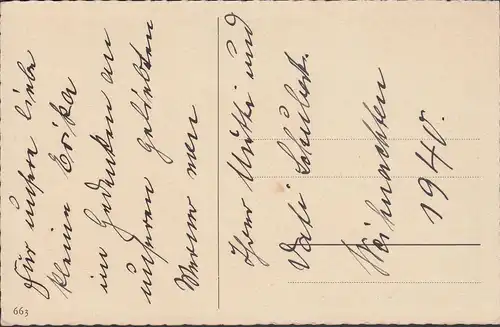 Für unsere liebe
kleine Erika
in Gedenken an
unseren geliebten
Werner von
Ihrer Mutti und
Vati Schubert.
Weihnachten
1940.
663